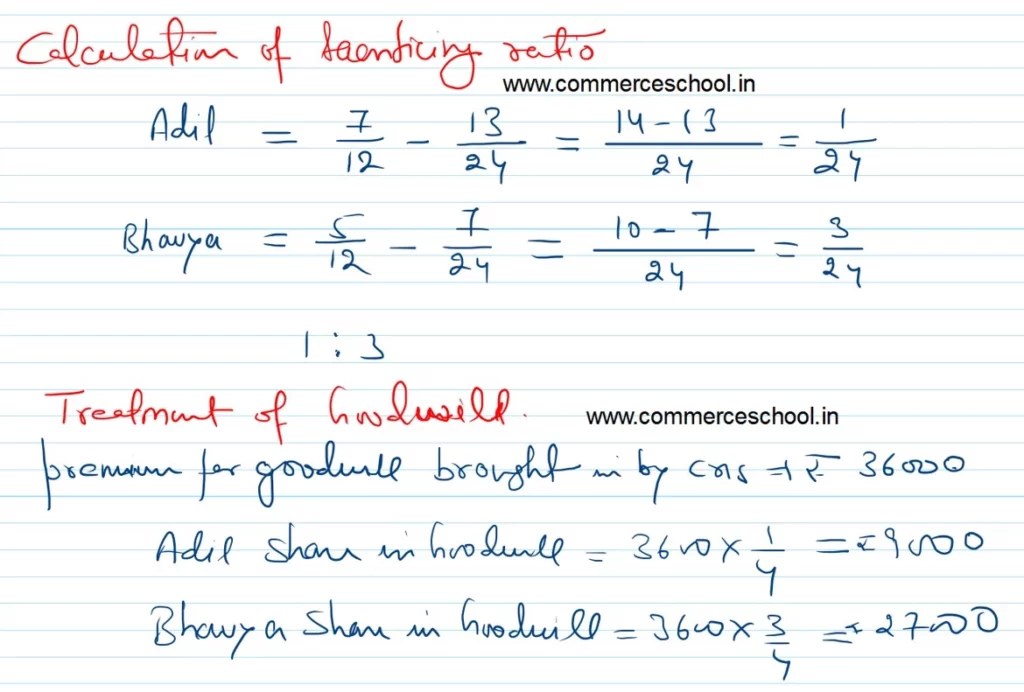 Calculation of Sacrificing ratio
www.commerceschool.in
Adil = 7/12 - 13/24 = 14-13/24 = 1/24
Bhavya = 5/12 - 7/24 = 10-7/24 = 3/24
1 : 3
Treatment of Goodwill.
www.commerceschool.in
premium for goodwill brought in by Cris → ₹ 36000
Adil Share in Goodwill = 36000 × 1/4 = ₹9000
Bhavya Share in Goodwill = 36000 × 3/4 = ₹27000